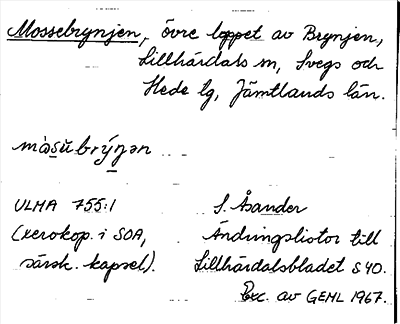 Mossebrynjen, övre loppet av Brynjen,
Lillhärdals sn, Svegs och
Hede tg, Jämtlands län.
màsu̇brý̄nən
ULMA 755:1
(xerokop. i SOA,
särsk. kapsel).
S. Åsander
Ändringslistor till
Lillhärdalsbladet s 40.
Exc. av GEHL 1967.